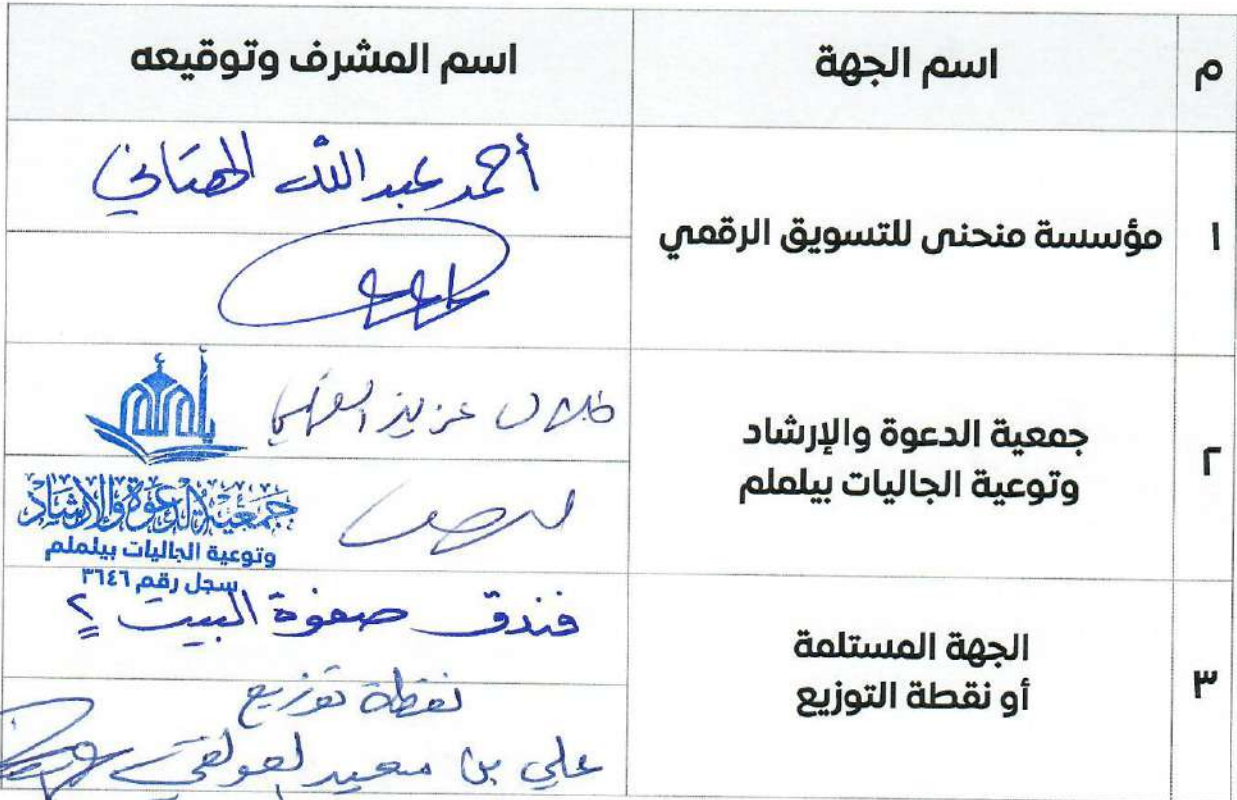 م اسم الجهة اسم المشرف وتوقيعه
١ مؤسسة منحنى للتسويق الرقمي
أحمد عبد الله
٢ جمعية الدعوة والإرشاد
وتوعية الجاليات بيلملم
طلال عزيز
يلملم
جمعية الدعوة والإرشاد
وتوعية الجاليات بيلملم
سجل رقم ٣٦٤٦
٣ الجهة المستلمة
أو نقطة التوزيع
فندق صفوة البيت ٢
نقطة توزيع
علي بن سعيد العولقي